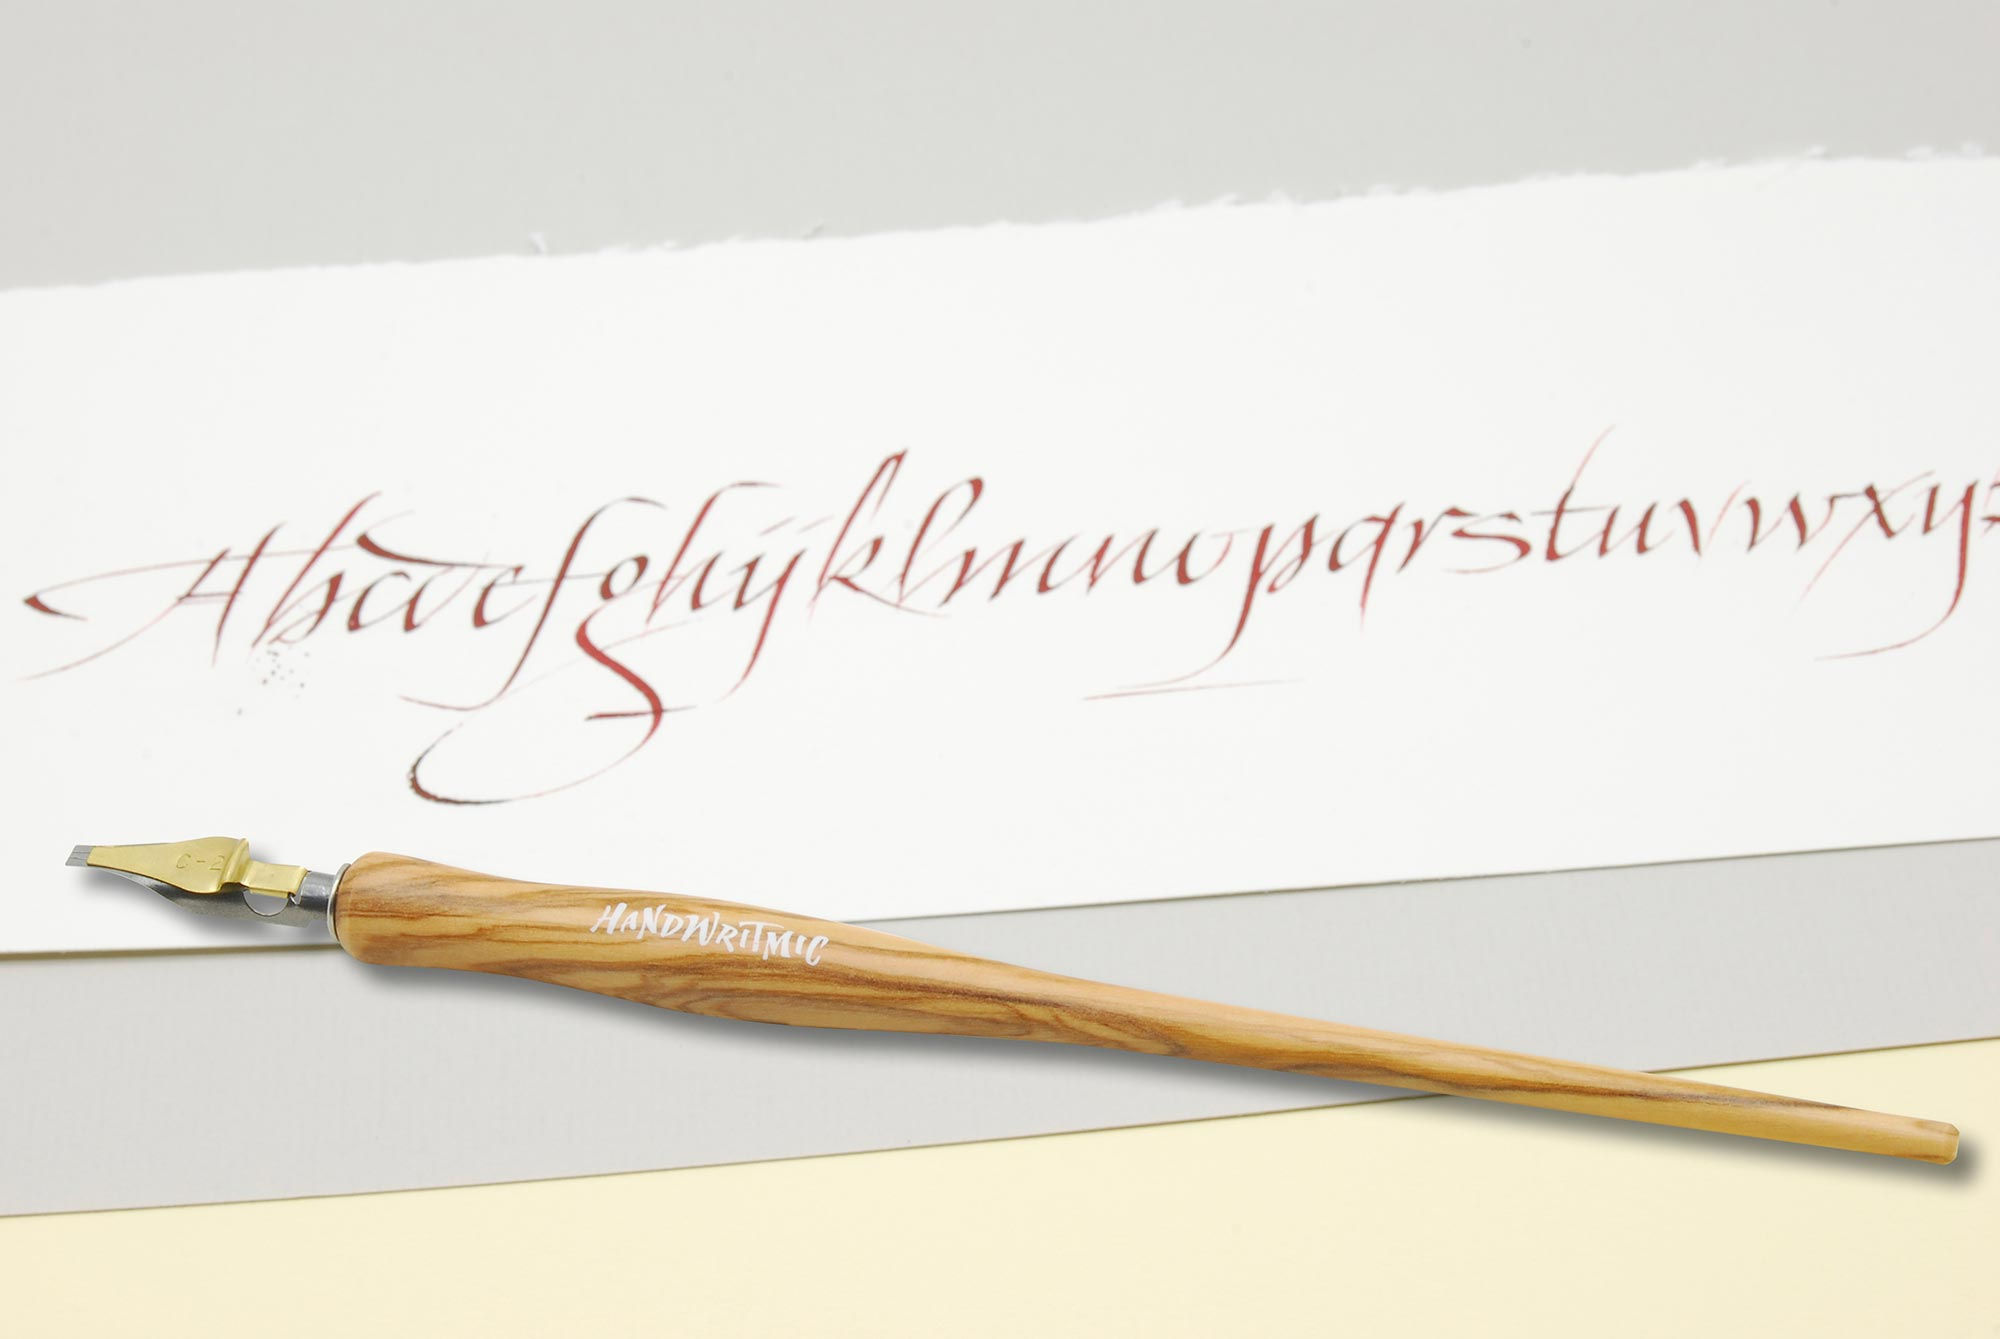 Abcdefghijklmnopqrstuvwxyz
C-2
HANDWRITMIC